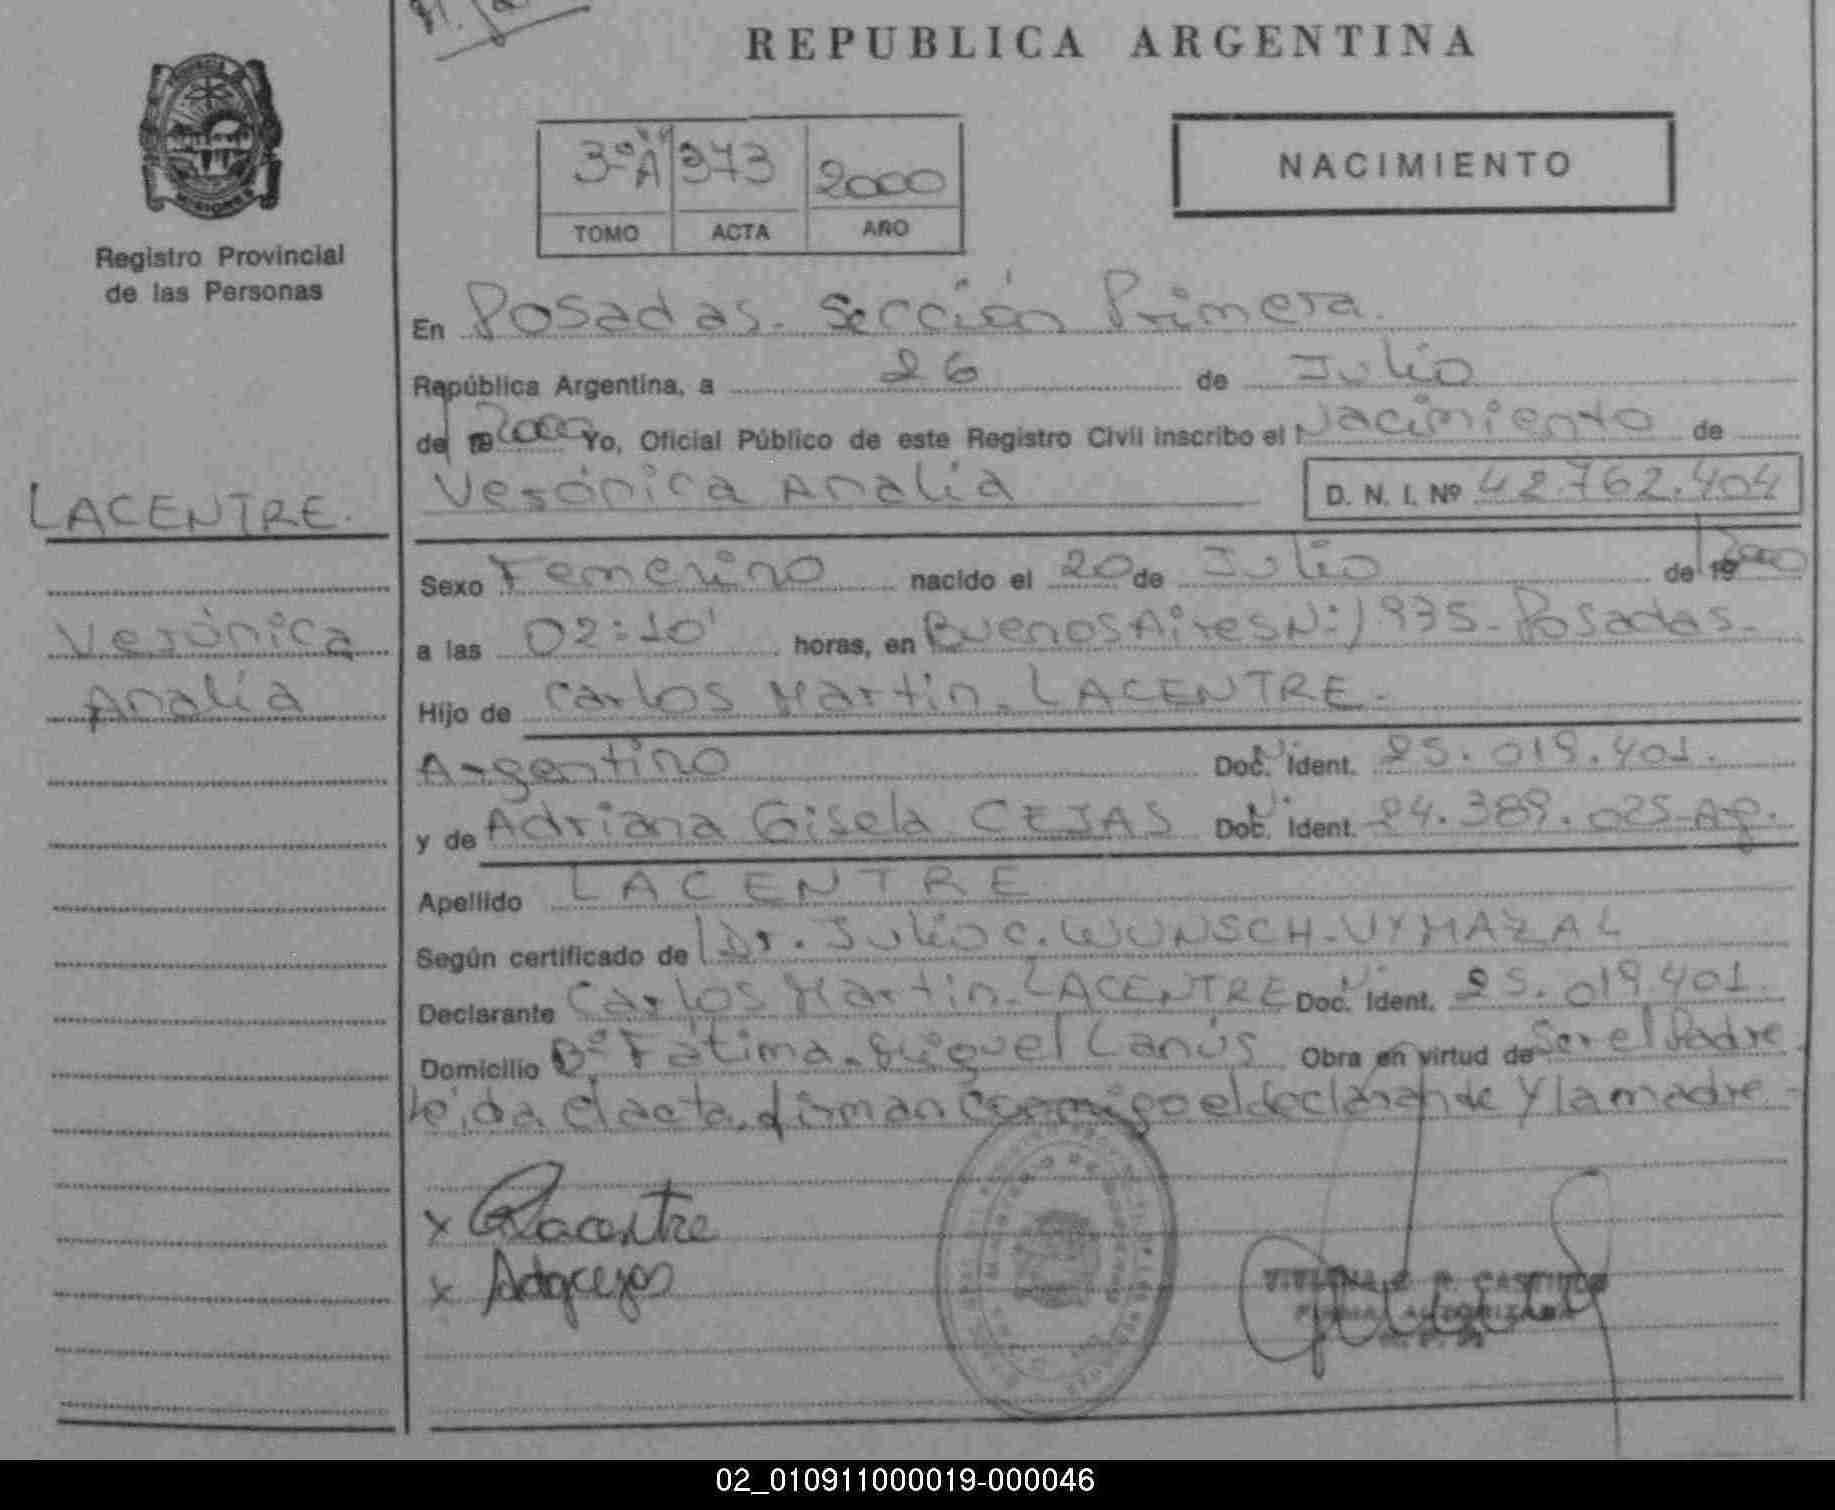 REPUBLICA ARGENTINA
3º "A" 373 2000
TOMO ACTA AÑO
NACIMIENTO
Registro Provincial
de las Personas
En Posadas. Sección Primera.
República Argentina, a 26 de Julio
de 2000 Yo, Oficial Público de este Registro Civil inscribo el Nacimiento de
Verónica Analía D. N. I. Nº 42.762.404
LACENTRE.
Verónica
Analía
Sexo Femenino nacido el 20 de Julio de 2000
a las 02:10' horas, en Buenos Aires Nº 1975- Posadas-
Hijo de Carlos Martin. LACENTRE-
Argentino Doc. Ident. 25.019.401.
y de Adriana Gisela CEJAS Doc. Ident. 24.389.025-Ag.
Apellido LACENTRE
Según certificado de Dr. Julio C. WUNSCH-VYMAZAL
Declarante Carlos Martin-LACENTRE Doc. Ident. 25.019.401.
Domicilio Bº Fátima. Miguel Lanús Obra en virtud de Ser el Padre.
leída el acta, firman conmigo el declarante y la madre-
x Lacentre
x Adgcejas
FIRMA AUTORIZADA
02_010911000019-000046